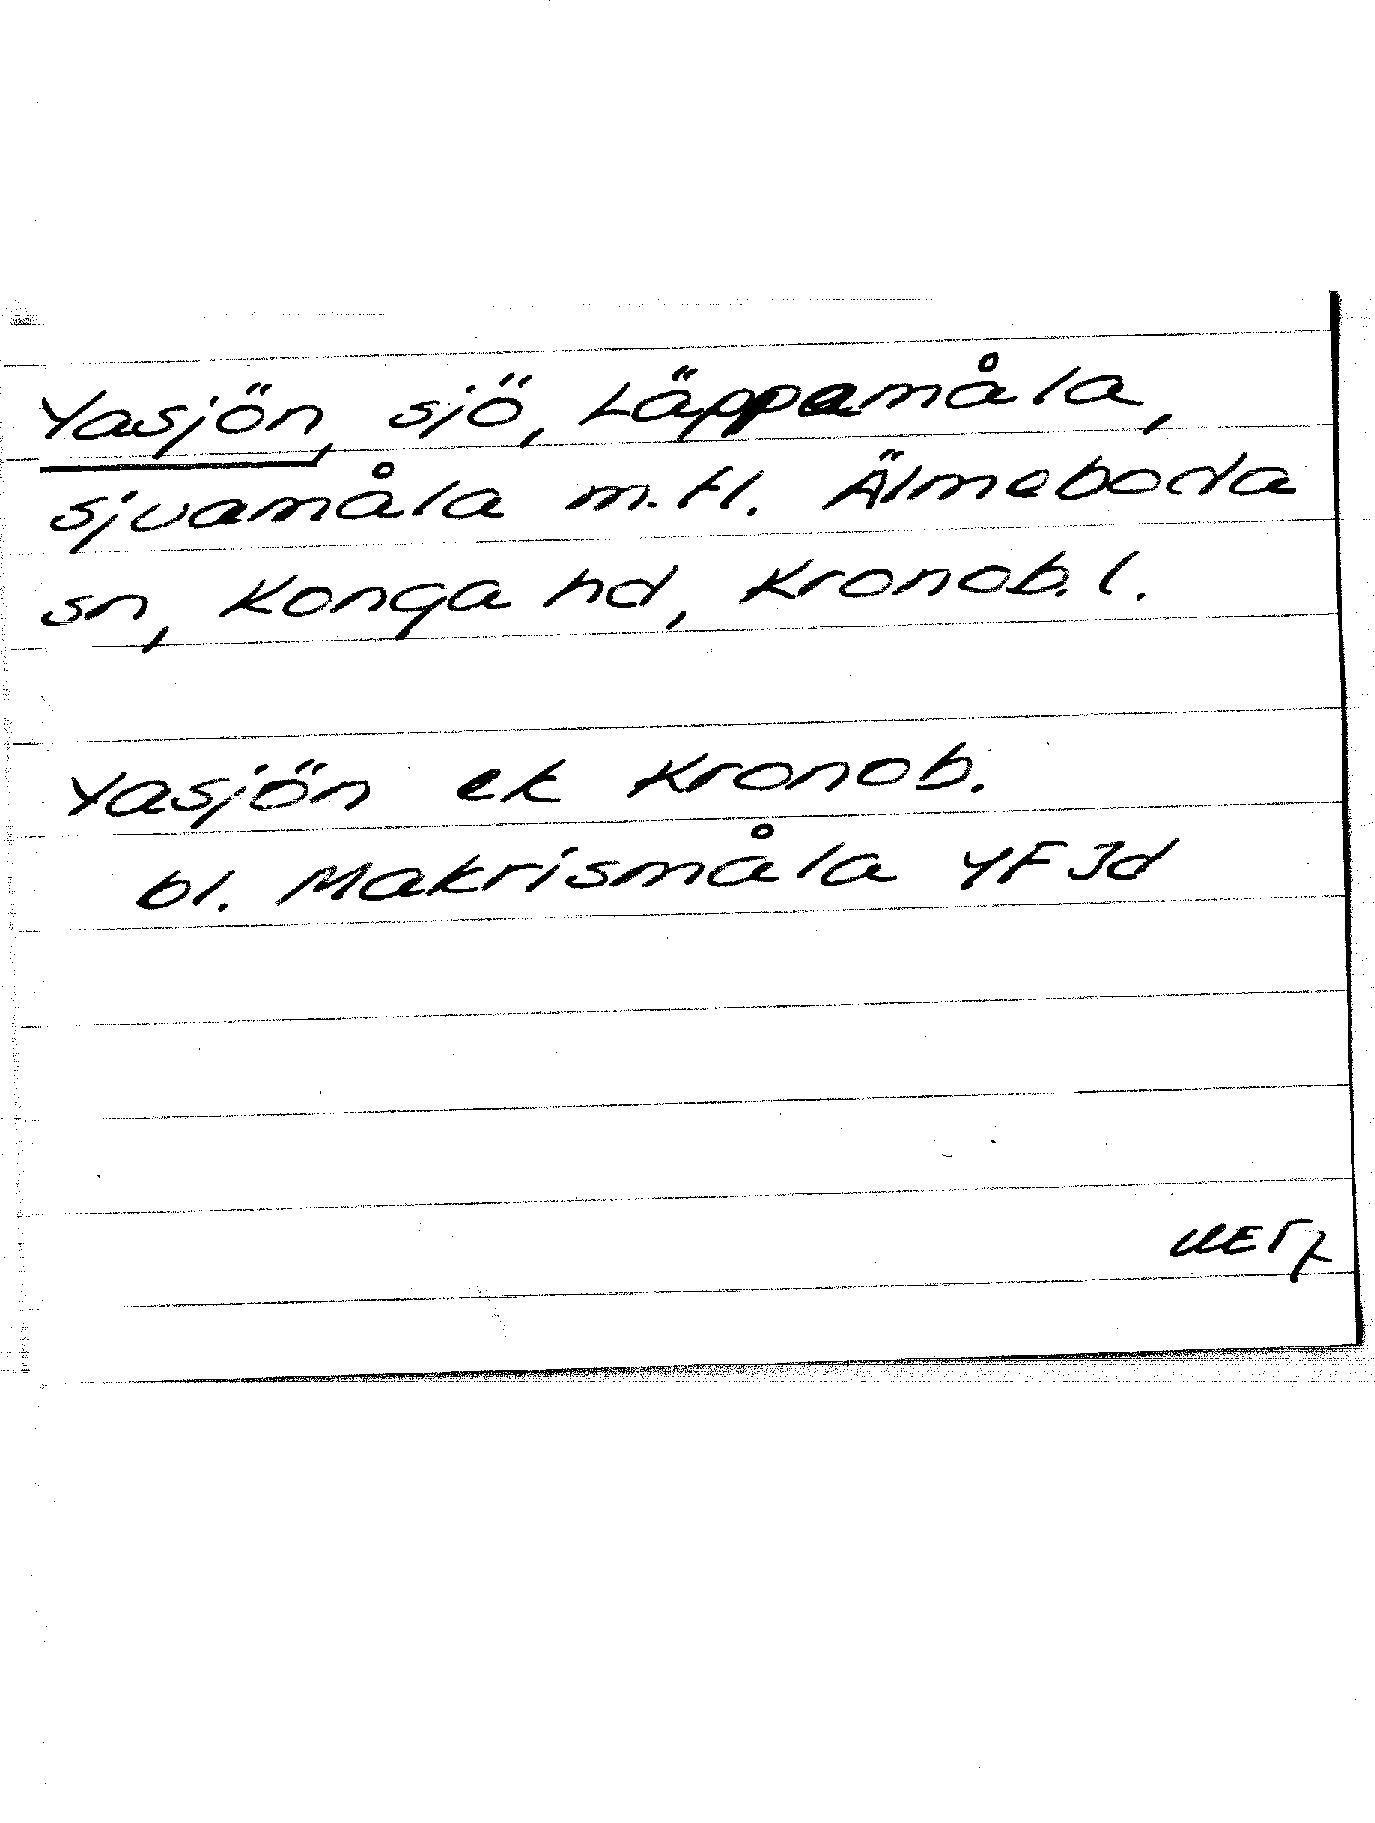 Yasjön, sjö, Läppamåla,
Sjuamåla m.fl. Älmeboda
sn, Konga hd, Kronob. l.
Yasjön ek Kronob.
bl. Makrismåla 4F3d